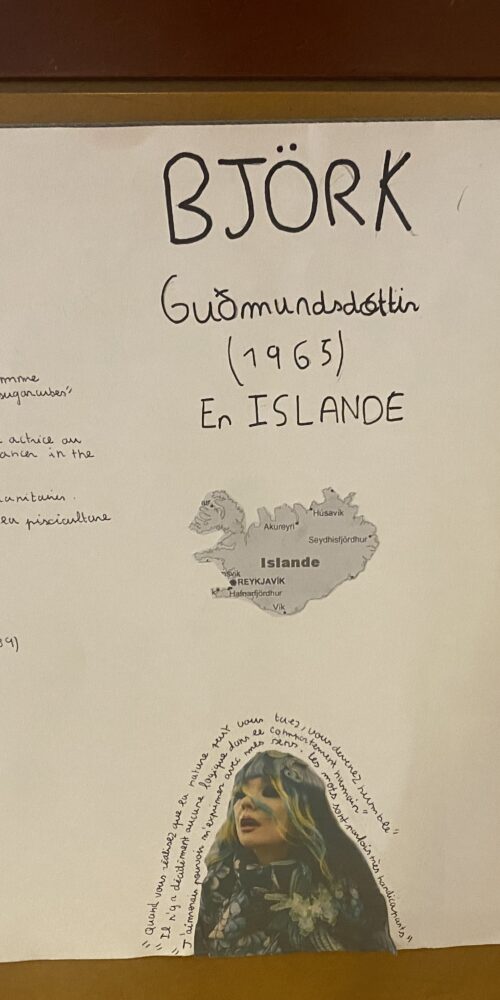 BJÖRK
Guðmundsdóttir
(1965)
En ISLANDE
sugarcubes"
actrice au
dancer in the
humanitaires.
la pisciculture
Húsavik
Akureyri
Seydhisfjördhur
Islande
REYKJAVÍK
Hafnarfjördhur
Vík
"Quand vous réalisez que la nature peut vous tuez, vous devenez humble"
"Il n'y a décidément aucune logique dans le comportement humain"
"J'aimerais pouvoir m'exprimer avec mes sens. Les mots sont parfois très handicapants"